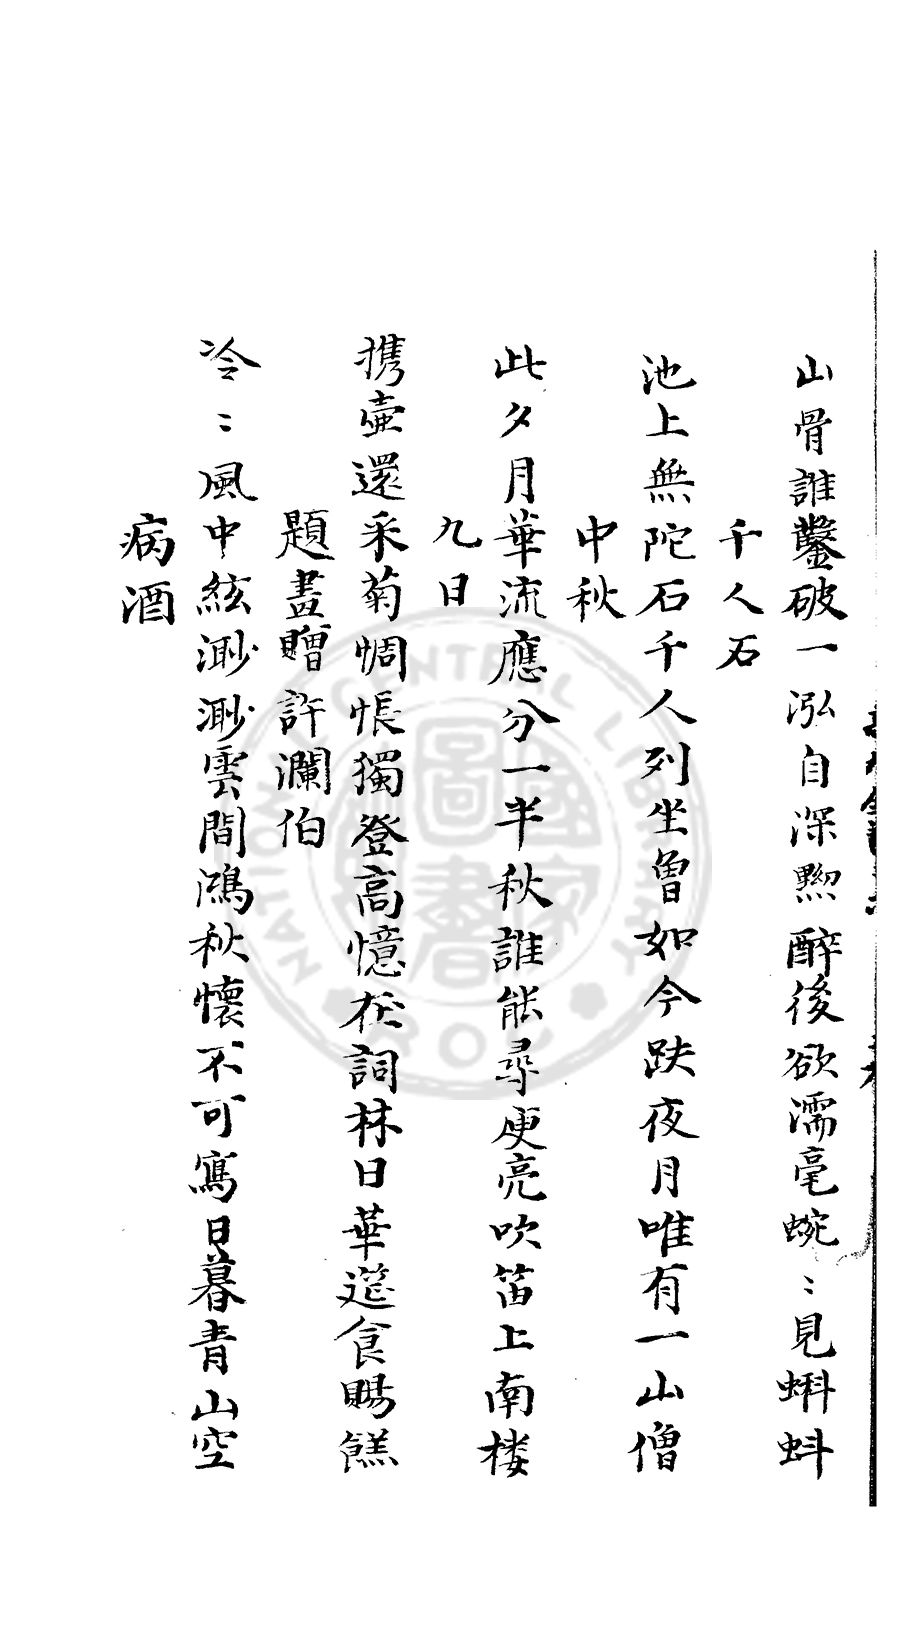 山骨誰鑿破一泓自深黝醉後欲濡毫蜿〻見蝌蚪
千人石
池上無陀石千人列坐曽如今趺夜月唯有一山僧
中秋
此夕月華流應分一半秋誰能尋庾亮吹笛上南楼
九日
携壺還采菊惆悵獨登高憶在詞林日華筵食賜餻
題畫贈許瀾伯
冷〻風中絃渺渺雲間鴻秋懷不可寫日暮青山空
病酒
NATIONAL CENTRAL LIBRARY
ROC
國家圖書館